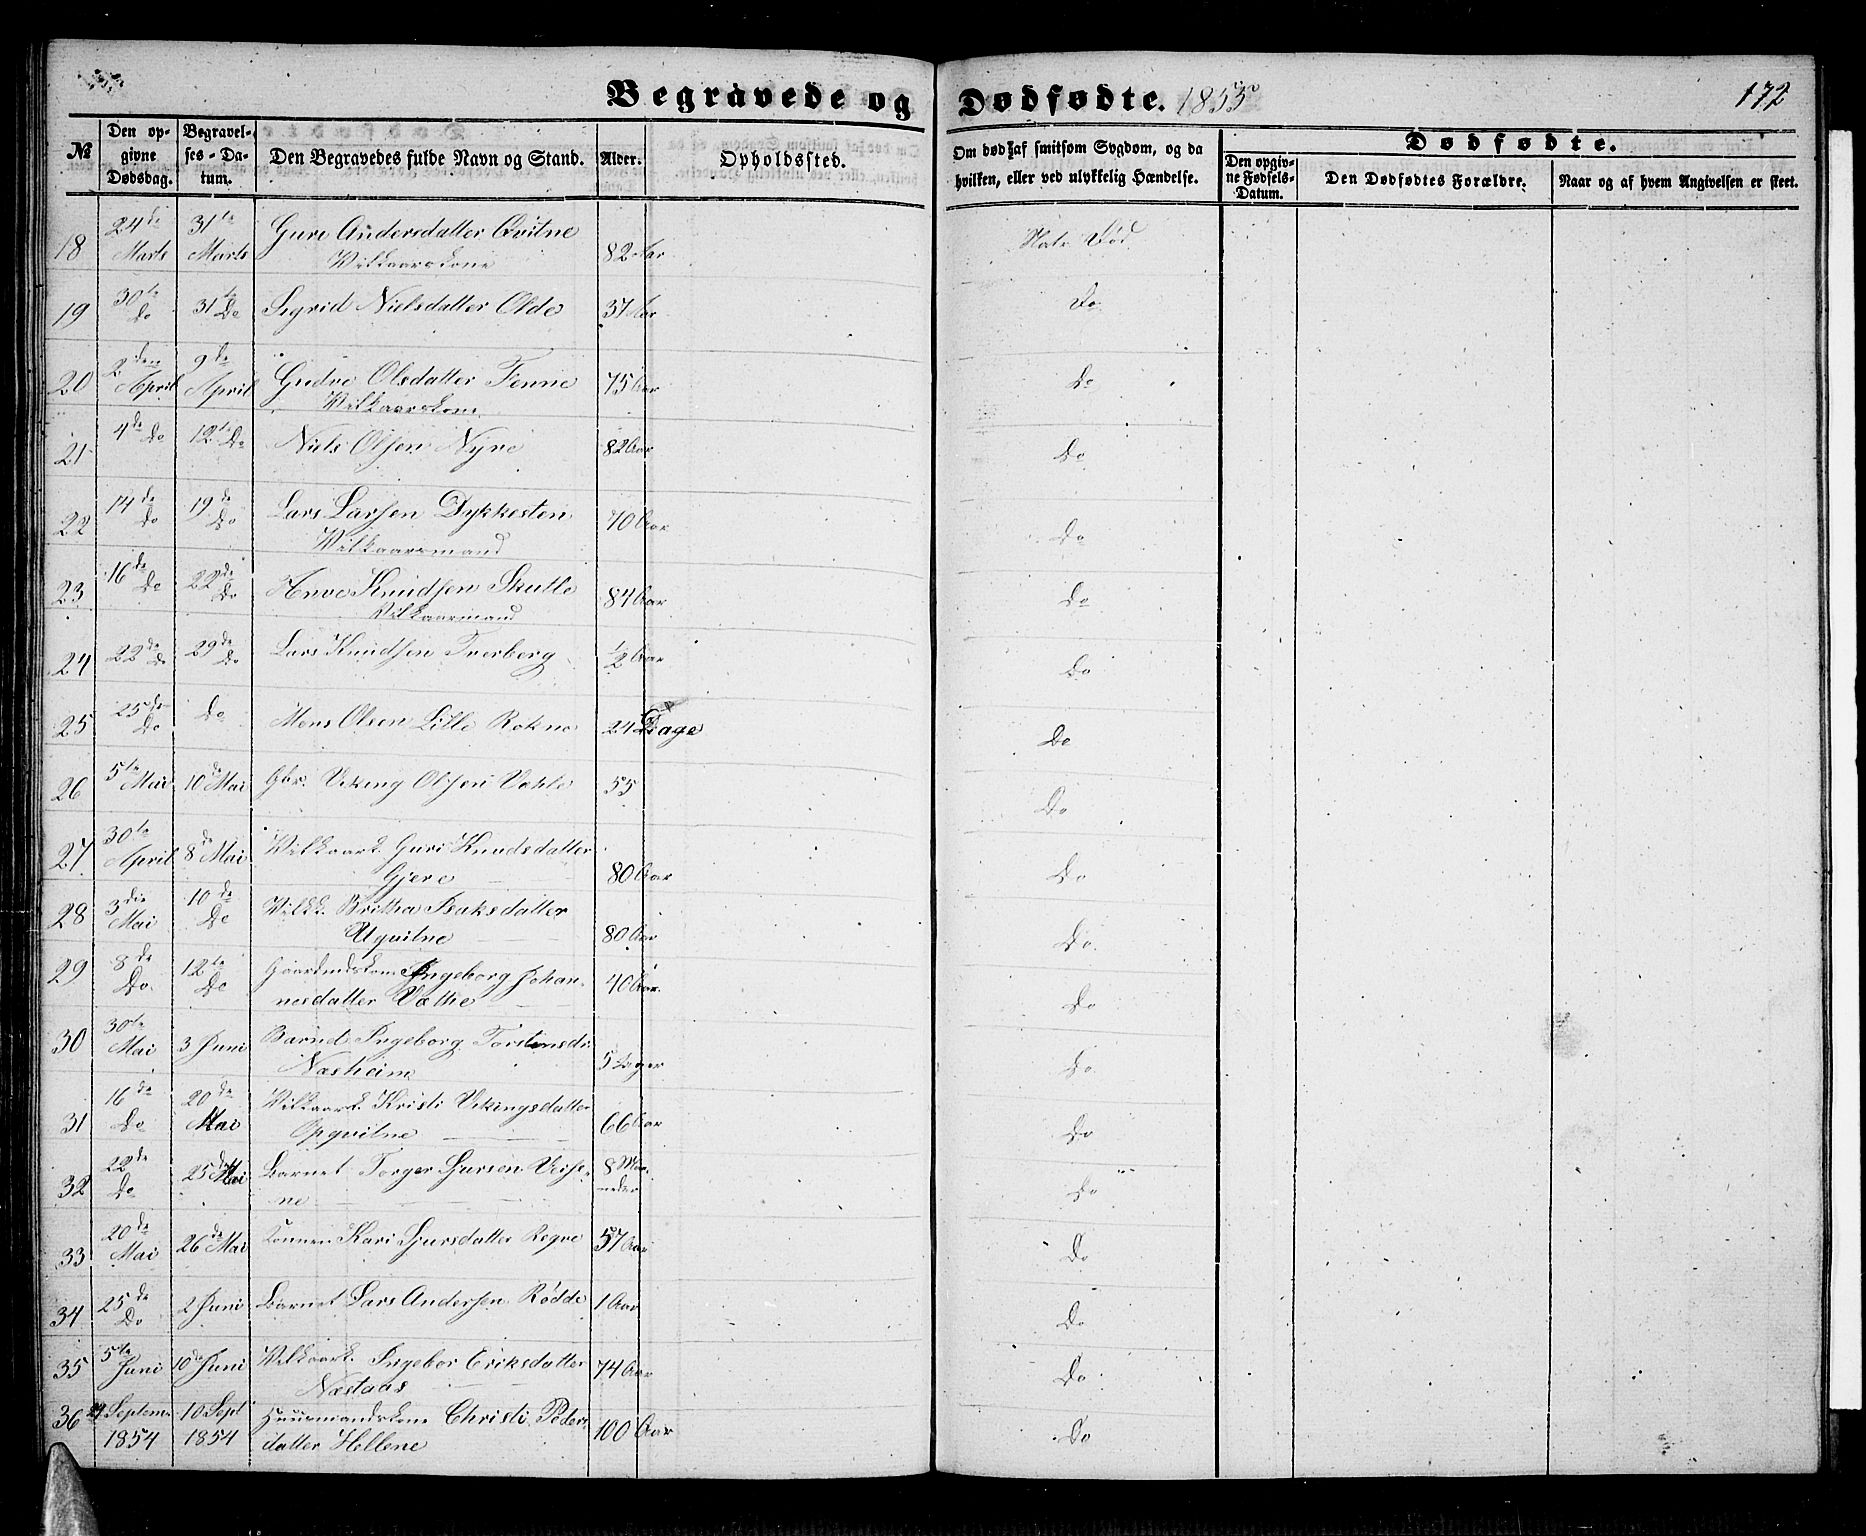 Begravede og Dødfødte. 1855
172
№
Den opgivne Dødsdag.
Begravelses-Datum.
Den Begravedes fulde Navn og Stand.
Alder.
Opholdssted.
Om død af smitsom Sygdom, og da hvilken, eller ved ulykkelig Hændelse.
Dødfødte.
Den opgivne Fødsels-Datum.
Den Dødfødtes Forældre.
Naar og af hvem Angivelsen er skeet.
18 24de Marts 31te Marts Guri Andersdatter Qvitne Vilkaarskone 82 Aar Natr. Død
19 30te Do 31te Do Sigrid Nielsdatter Olde 37 Aar Do
20 2den April 9de April Gudve Olsdatter Tenne Vilkaarskone 75 Aar Do
21 4de Do 12te Do Niels Olsen Nyre 82 Aar Do
22 14de Do 19de Do Lars Larsen Dykkesten Vilkaarsmand 70 Aar Do
23 16de Do 22de Do Anve Knudsen Skulle Vilkaarmand 84 Aar Do
24 22de Do 29de Do Lars Knudsen Tverberg 1/2 Aar Do
25 25de Do Do Mons Olsen Lille Rokne 24 Dage Do
26 5te Mai 10de Mai Gbr. Viking Olsen Væhle 55 Do
27 30te April 8de Mai Vilkaark. Guri Knudsdatter Gjere 80 Aar Do
28 3die Mai 10de Do Vilkk. Britha Isaksdatter Ugvitne 80 Aar Do
29 8de Do 12te Do Gaardmdskone Ingeborg Johannesdatter Væthe 40 Aar Do
30 30te Mai 3 Juni Barnet Ingeborg Torstensdr Næsheim 5 Dager Do
31 16de Do 20de Mai Vilkaark. Kristi Vikingsdatter Opqvitne 66 Aar Do
32 22de Do 25de Mai Barnet Torger Sjursen Veisene 8 Maaneder Do
33 20de Mai 26de Mai Konnen Kari Sjursdatter Reqve 57 Aar Do
34 25de Do 2 Juni Barnet Lars Andersen Rødde 1 Aar Do
35 5te Juni 10de Juni Vilkaark. Ingebor Eriksdatter Næstaas 74 Aar Do
36 Septem 1854 10 Sept 1854 Huusmandskone Christi Pedersdatter Hellene 100 Aar Do